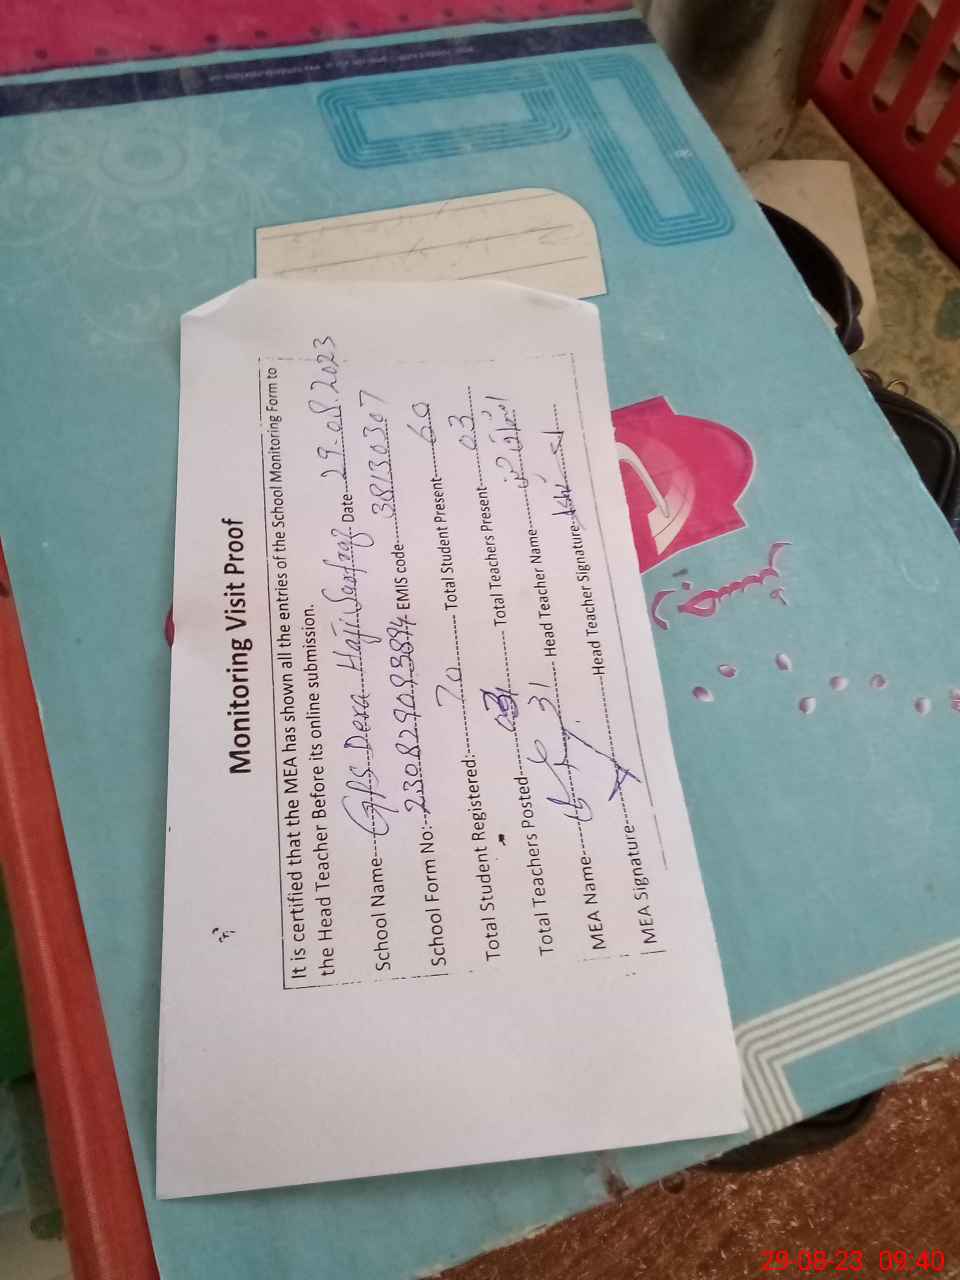 Monitoring Visit Proof
It is certified that the MEA has shown all the entries of the School Monitoring Form to
the Head Teacher Before its online submission.
School Name GPS Dera Haji Date 29.08.2023
School Form No: 230829093894 EMIS code 38130307
Total Student Registered: 70 Total Student Present 60
Total Teachers Posted 03 Total Teachers Present 03
MEA Name 31 Head Teacher Name
MEA Signature Head Teacher Signature
29-08-23 09:40